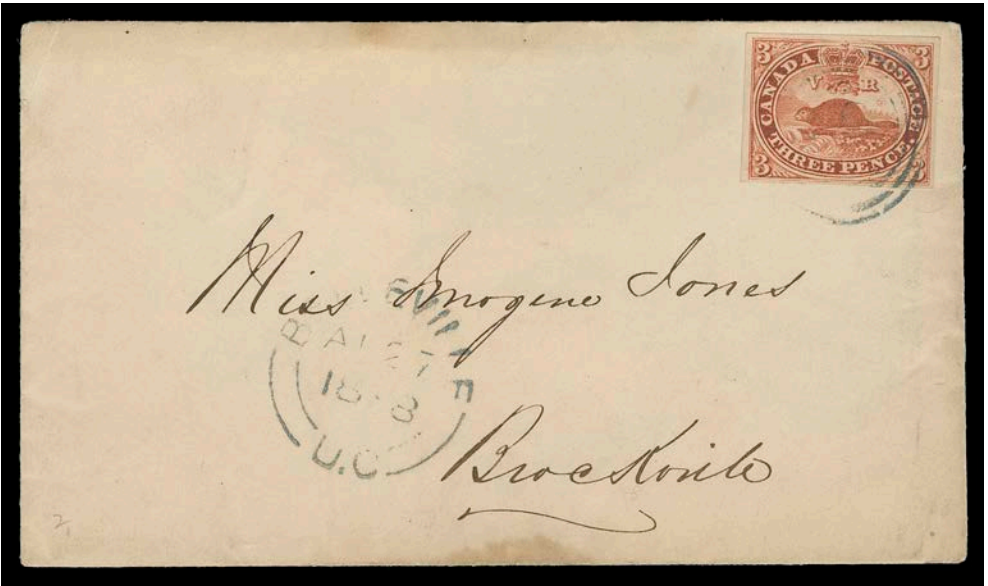 3 3
CANADA POSTAGE
V R
THREE PENCE.
3 3
Miss Imogene Jones
27
U.C
Brockville